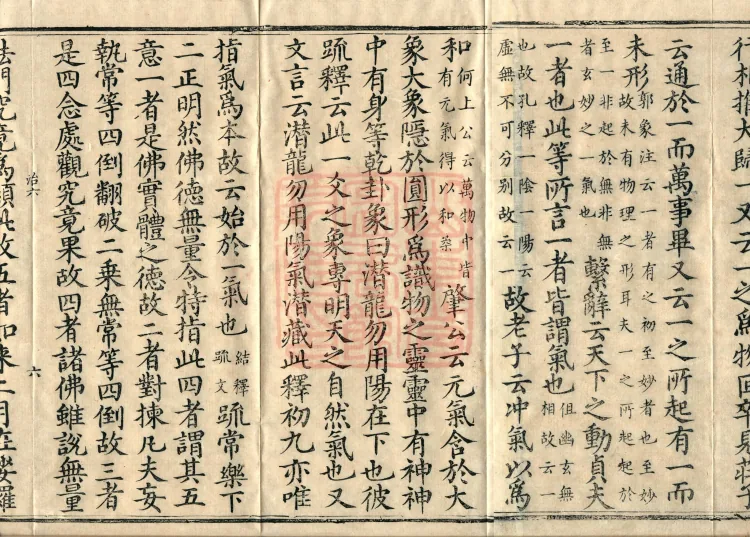 云通於一而萬事畢又云一之所起有一而
未形郭象注云一者有之初至妙者也至妙
故未有物理之形耳夫一之所起起於
至一非起於無非無
者玄妙之一氣也繫辭云天下之動貞夫
一者也此等所言一者皆謂氣也但幽玄無
相故云一
也故孔釋一陰一陽云
虛無不可分别故云一故老子云冲氣以爲
和何上公云萬物中皆
有元氣得以和柔肇公云元氣含於大
象大象隱於圓形爲識物之靈靈中有神神
中有身等乾卦象曰潛龍勿用陽在下也彼
䟽釋云此一爻之象專明天之自然氣也又
文言云潛龍勿用陽氣潛藏此釋初九亦唯
指氣爲本故云始於一氣也結釋
䟽文䟽常樂下
二正明然佛德無量今特指此四者謂其五
意一者是佛實體之德故二者對揀凡夫妄
執常等四倒翻破二乘無常等四倒故三者
是四念處觀究竟果故四者諸佛雖説無量
法門究竟爲顯此故五者如來二月在娑羅